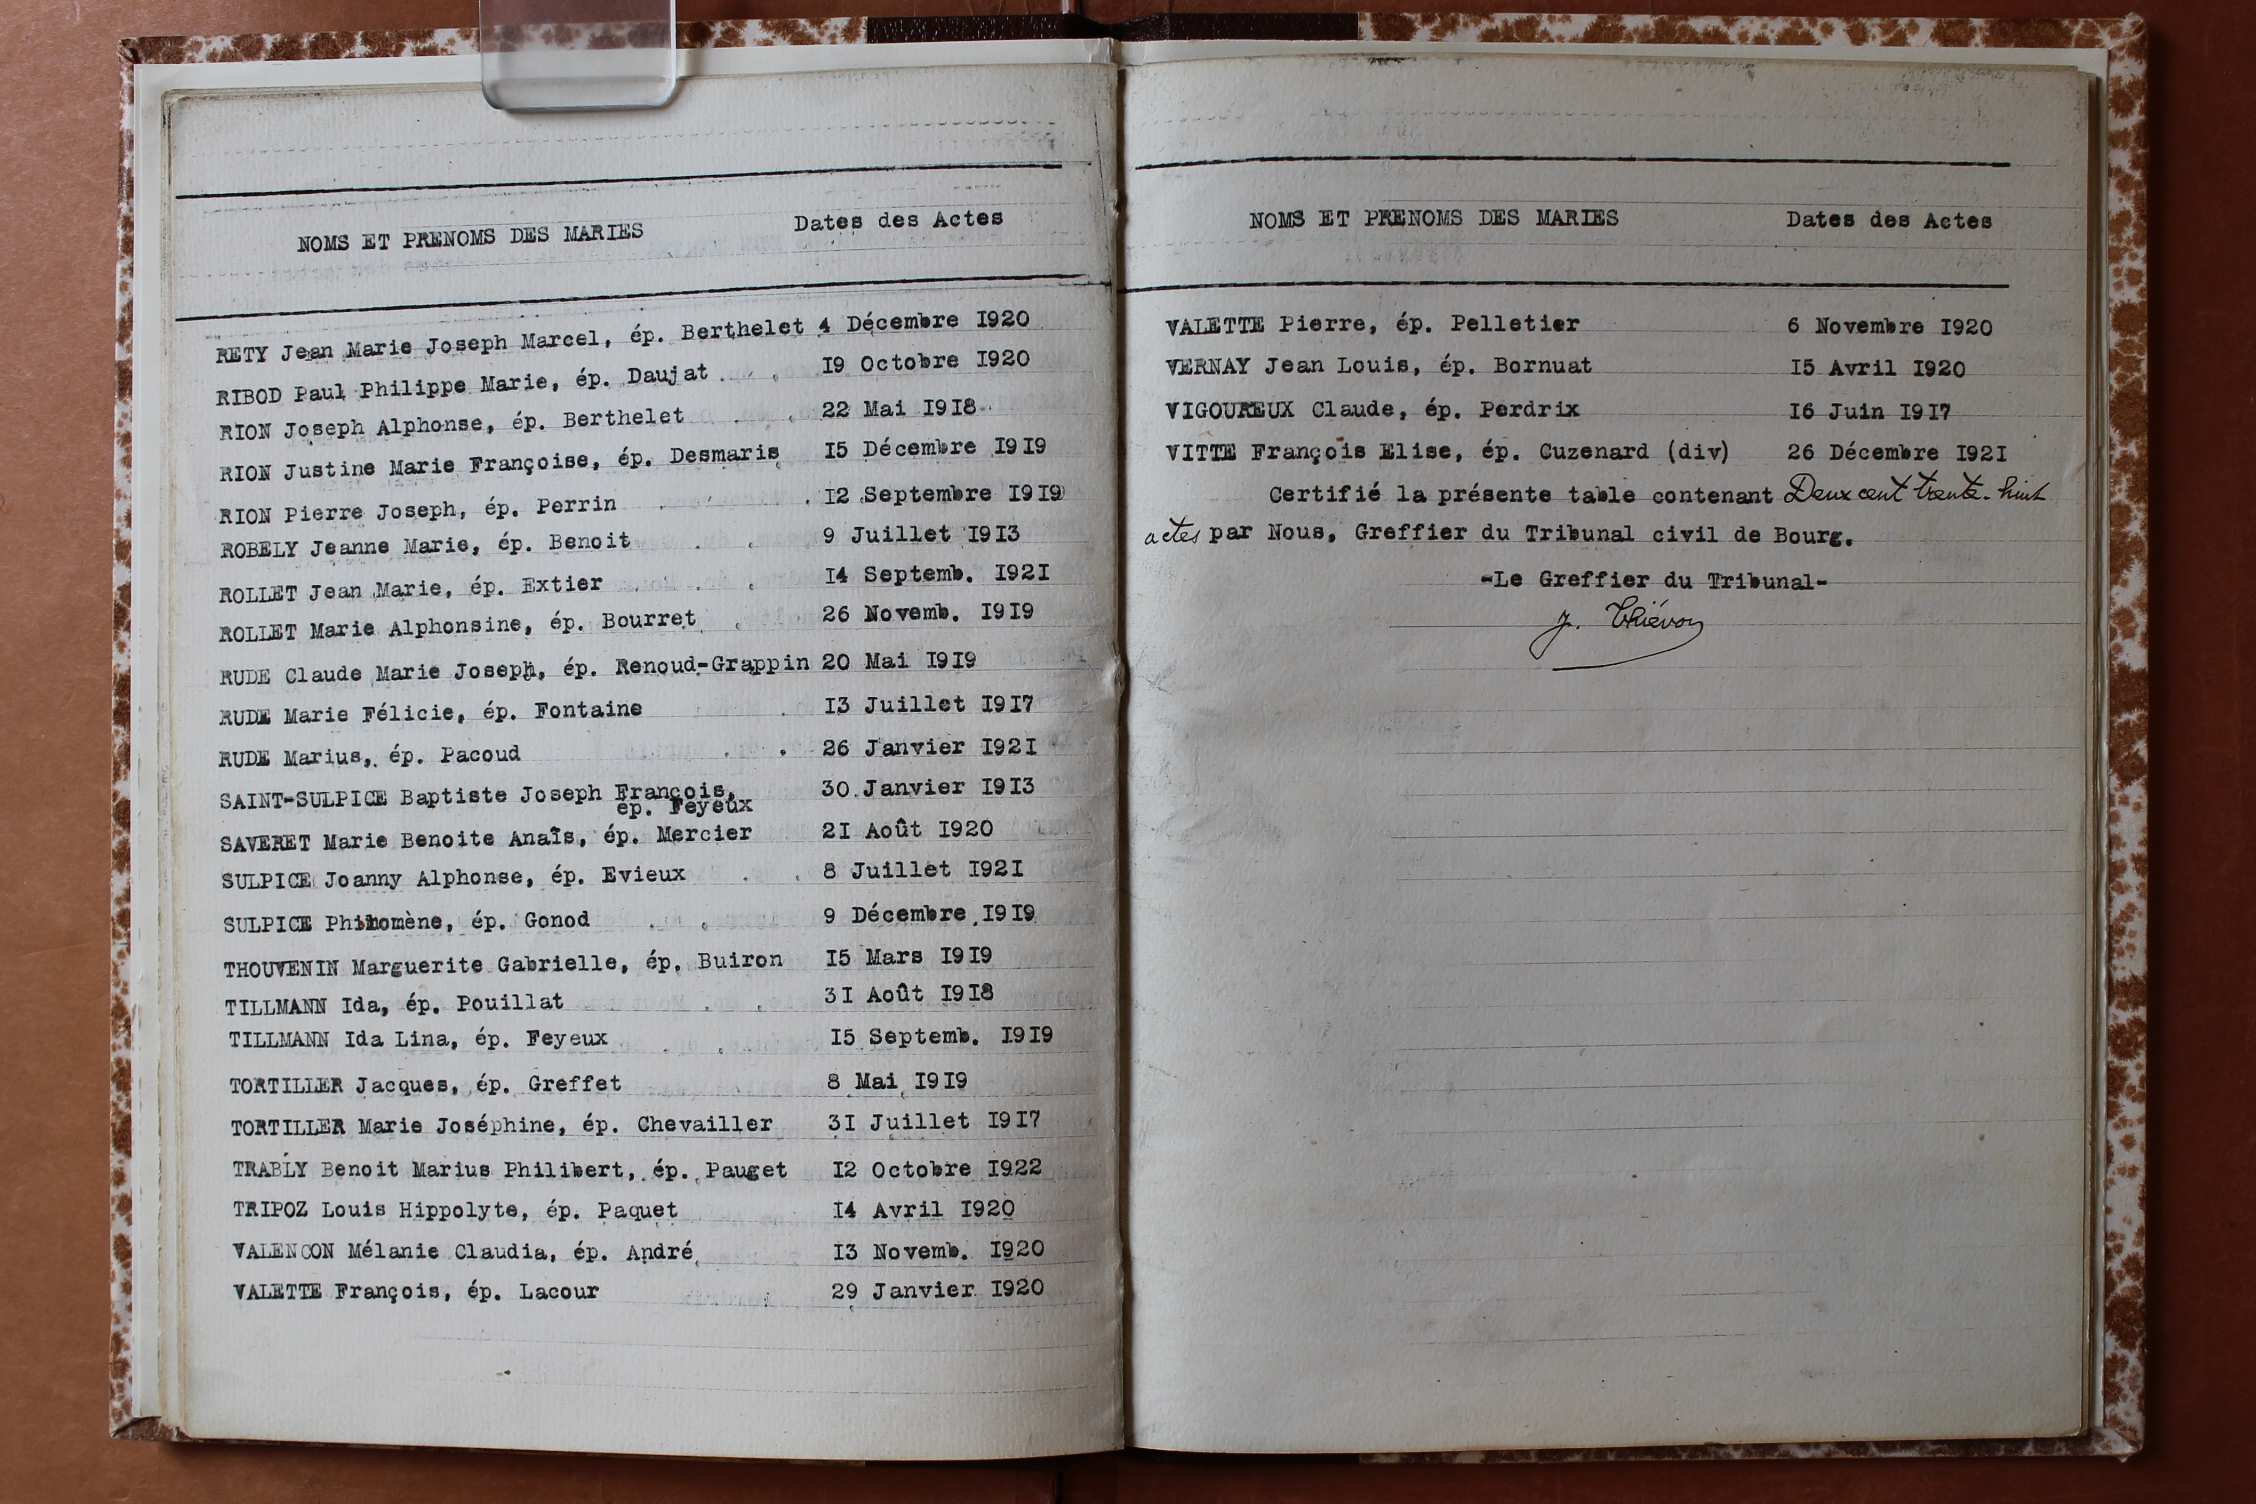 NOMS ET PRENOMS DES MARIES Dates des Actes
RETY Jean Marie Joseph Marcel, ép. Berthelet 4 Décembre 1920
RIBOD Paul Philippe Marie, ép. Daujat 19 Octobre 1920
RION Joseph Alphonse, ép. Berthelet 22 Mai 1918
RION Justine Marie Françoise, ép. Desmaris 15 Décembre 1919
RION Pierre Joseph, ép. Perrin 12 Septembre 1919
ROBELY Jeanne Marie, ép. Benoit 9 Juillet 1913
ROLLET Jean Marie, ép. Extier 14 Septemb. 1921
ROLLET Marie Alphonsine, ép. Bourret 26 Novemb. 1919
RUDE Claude Marie Joseph, ép. Renoud-Grappin 20 Mai 1919
RUDE Marie Félicie, ép. Fontaine 13 Juillet 1917
RUDE Marius, ép. Pacoud 26 Janvier 1921
SAINT-SULPICE Baptiste Joseph François, 30 Janvier 1913
ép. Feyeux
SAVERET Marie Benoite Anaïs, ép. Mercier 21 Août 1920
SULPICE Joanny Alphonse, ép. Evieux 8 Juillet 1921
SULPICE Philomène, ép. Gonod 9 Décembre 1919
THOUVENIN Marguerite Gabrielle, ép. Buiron 15 Mars 1919
TILLMANN Ida, ép. Pouillat 31 Août 1918
TILLMANN Ida Lina, ép. Feyeux 15 Septemb. 1919
TORTILLER Jacques, ép. Greffet 8 Mai 1919
TORTILLER Marie Joséphine, ép. Chevailler 31 Juillet 1917
TRABLY Benoit Marius Philibert, ép. Pauget 12 Octobre 1922
TRIPOZ Louis Hippolyte, ép. Paquet 14 Avril 1920
VALENCON Mélanie Claudia, ép. André 13 Novemb. 1920
VALETTE François, ép. Lacour 29 Janvier 1920
NOMS ET PRENOMS DES MARIES Dates des Actes
VALETTE Pierre, ép. Pelletier 6 Novembre 1920
VERNAY Jean Louis, ép. Bornuat 15 Avril 1920
VIGOUREUX Claude, ép. Perdrix 16 Juin 1917
VITTE François Elise, ép. Cuzenard (div) 26 Décembre 1921
Certifié la présente table contenant Deux cent trente-huit
actes par Nous, Greffier du Tribunal civil de Bourg.
-Le Greffier du Tribunal-
J. Thiévon